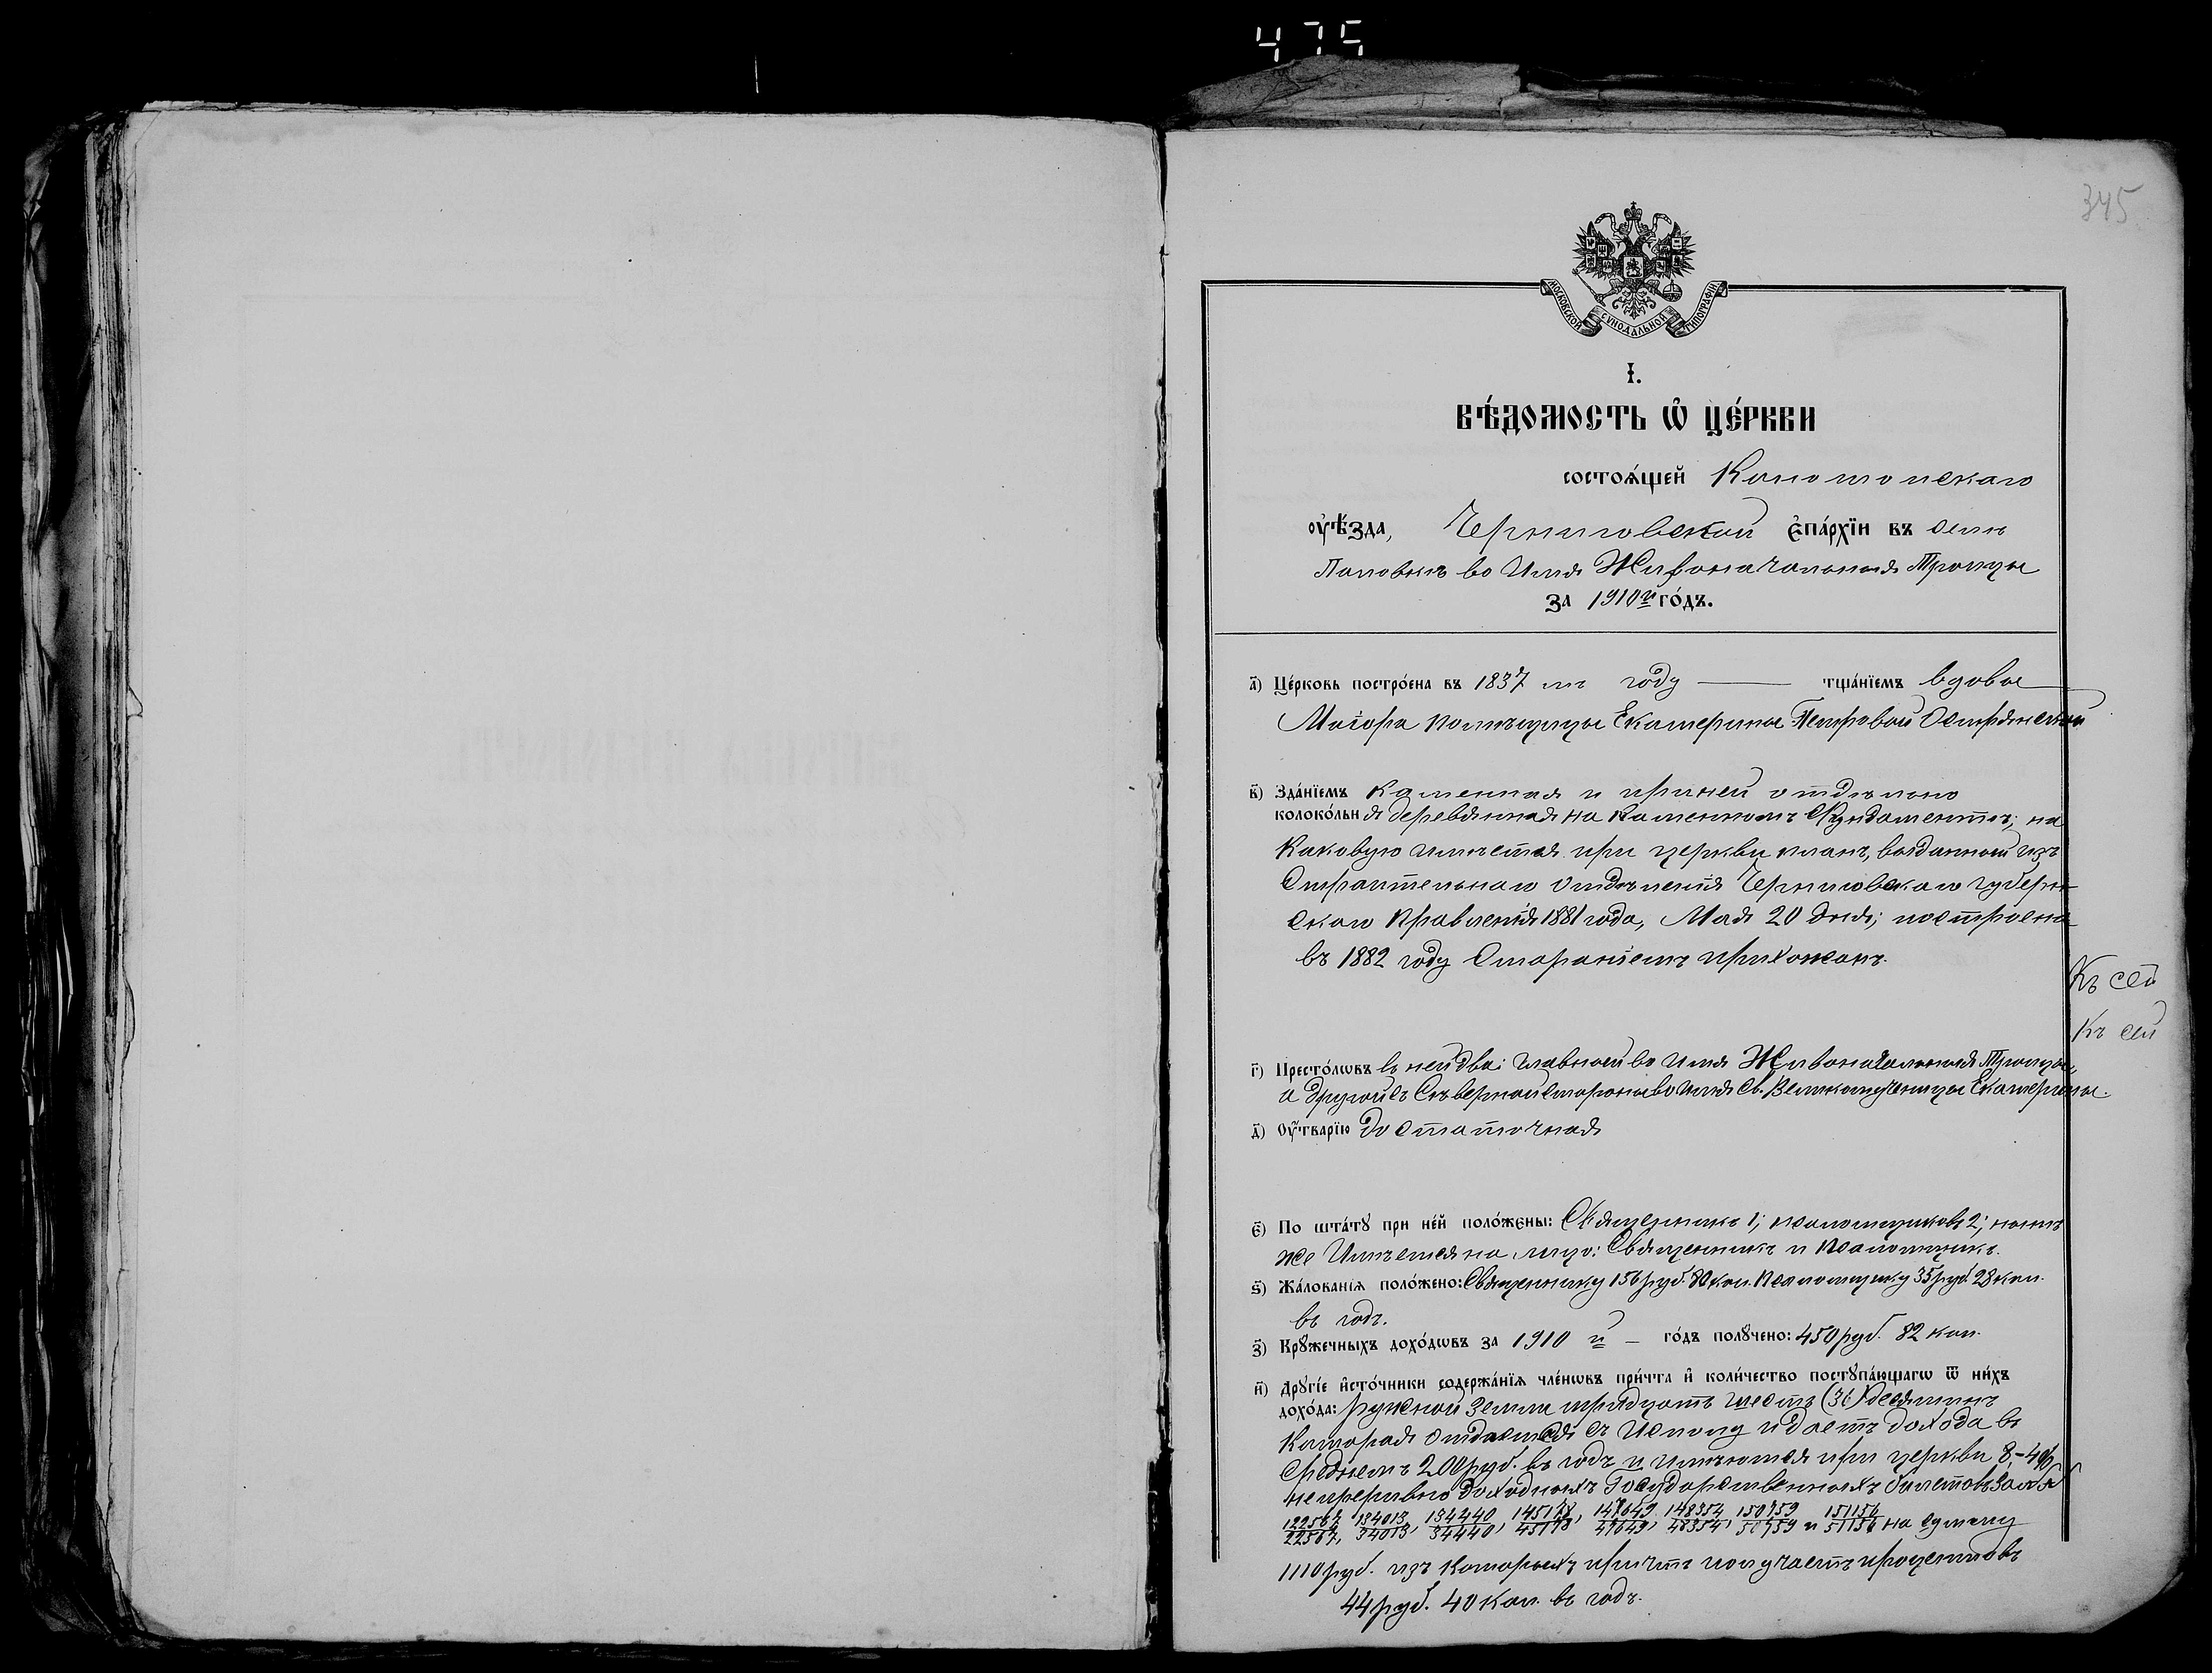 475
345
МОСКОВСКОЙ СѴНОДАЛЬНОЙ ТИПОГРАФІИ
І.
ВѢ́ДОМОСТЬ Ѡ҆ ЦЕ́РКВИ
состоѧ́щей Конотопскаго
оу҆ѣ́зда, Черниговской є҆па́рхїи въ селѣ
Поповкѣ во Имя Живоначальныя Троицы
за 1910й го́дъ.
а҃) Це́рковь постро́ена въ 1837 мъ году — тща́нїемъ вдовы
Маіора помѣщицы Екатерины Петровой Острянской
в҃) Зда́нїемъ каменная и приней отдѣльно
колоко́льня деревянная на каменномъ Фундаментѣ; на
каковую имѣется при церкви планъ, выданный изъ
Строительнаго отдѣленія Черниговскаго губерн-
скаго Правленія 1881 года, Мая 20 дня; построена
въ 1882 году Стараніемъ прихожанъ.
Къ сей
Къ сей
г҃) Престо́лѡвъ въ ней два: главный во имя Живоначальныя Троицы,
а другой съ Сѣверной стороны во имя Св. Великомученицы Екатерины.
д҃) Оу҆́тварїю достаточная
є҃) По шта́тꙋ при не́й поло́жены: Священникъ 1; псаломщиковъ 2; нынѣ
же Имѣется на лицо: Священникъ и Псаломщикъ.
ѕ҃) Жа́лованїѧ поло́жено: Священнику 156 руб. 80 коп. Псаломщику 35 руб. 28 коп.
въ годъ.
з҃) Крꙋ́жечныхъ дохо́дѡвъ за 1910 й — го́дъ полꙋ́чено: 450 руб. 82 коп.
и҃) Дрꙋгі́е и҆сто́чники содержа́нїѧ чле́нѡвъ при́чта и҆ коли́чество постꙋпа́ющагѡ ѿ ни́хъ
дохо́да: ружной земли тридцать шесть (36) десятинъ
которая отдается съ Исполу и даетъ дохода въ
среднемъ 200 руб. въ годъ и имѣются при церкви 8,- 4%
непрерывно доходныхъ Государственныхъ билетовъ за №№
122567/22567, 134013/34013, 134440/34440, 145178/45178, 147649/47649, 148354/48354, 150759/50759 и 151156/51156 на сумму
1110 руб. изъ которыхъ причтъ получаетъ процентовъ
44 руб. 40 коп. въ годъ.